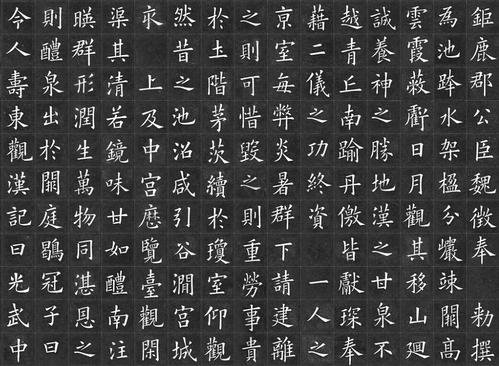 鉅鹿郡公臣魏徵奉勅撰
為池跨水架楹分巖竦闕高
雲霞蔽虧日月觀其移山迴
誠養神之勝地漢之甘泉不
越青丘南踰丹儌皆獻琛奉
藉二儀之功終資一人之
京室每弊炎暑群下請建離
之則可惜毀之則重勞事貴
於土階茅茨續於瓊室仰觀
然昔之池沼咸引谷澗宮城
求上及中宮歷覽臺觀閑
渠其清若鏡味甘如醴南注
暎群形潤生萬物同湛恩之
則醴泉出於闕庭鶡冠子曰
今人壽東觀漢記曰光武中